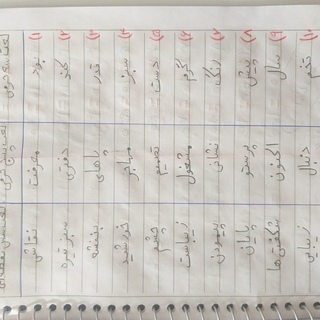 لغت سه حرفی لغت پنج حرفی لغت سال نقطه‌ای
۱) بود معرفت نقاشی
۲) کند دفتری سبز تیره
۳) قدر پاهای بنفشه
۴) سبز مهاجر خورشید
۵) دست تصمیم چشم
۶) گرم مشغول زیباست
۷) رنگ نشانی پیمودن
۸) پیش پرستو پایانی
۹) سال اکنون شگفتی‌ها
۱۰) تخم دنبال زیبایی